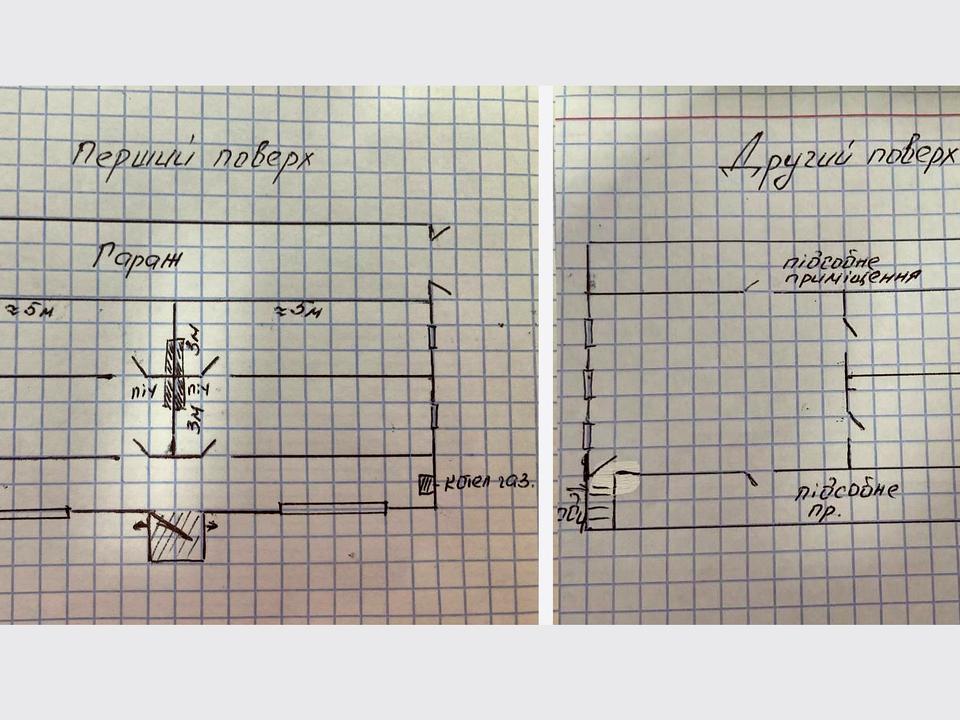 Перший поверх
Гараж
≈5м
≈5м
3м
піч
піч
3м
котел газ.
Другий поверх
підсобне
приміщення
підсобне
пр.